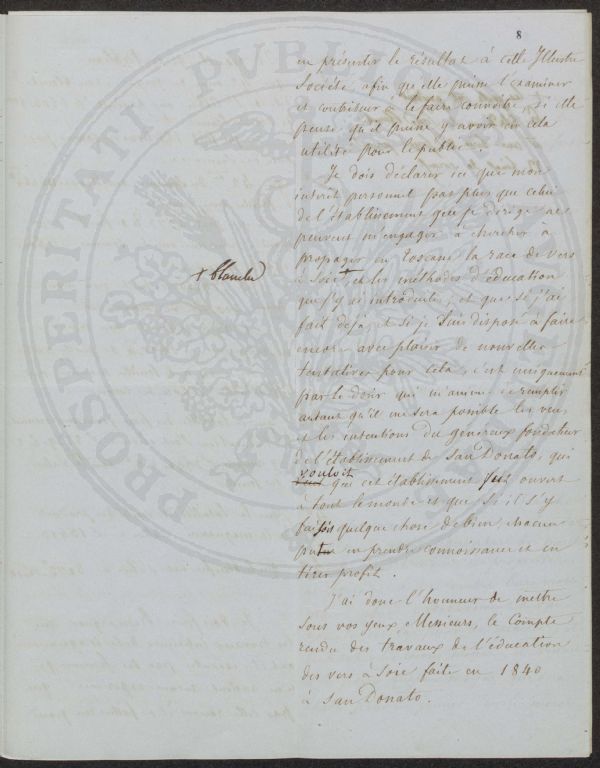 8
en présenter le résultat à cette Illustre
Société afin qu'elle puisse l'examiner
et contribuer à le faire connoitre, si elle
pense qu'il puisse y avoir en cela
utilité pour le public.
Je dois déclarer ici que mon
intérêt personnel pas plus que celui
de l'établissement que je dirige ne
peuvent m'engager à chercher à
propager en Toscane la race de vers
à soie + et les méthodes d'éducation
+ blanche
que j'y ai introduites, et que si j'ai
fait déjà, et si je suis disposé à faire
encore avec plaisir de nouvelles
tentatives pour cela, c'est uniquement
par le désir qui m'anime de remplir
autant qu'il me sera possible les vues
et les intentions du généreux fondateur
de l'établissement de San Donato, qui
vouloit
que cet établissement fut ouvert
à tout le monde et que si il s'y
faisoit quelque chose de bien, chacun
put en prendre connoissance et en
tirer profit.
J'ai donc l'honneur de mettre
sous vos yeux, Messieurs, le Compte
rendu des travaux de l'éducation
des vers à Soie faite en 1840
à San Donato.
PROSPERITATI PUBLICAE